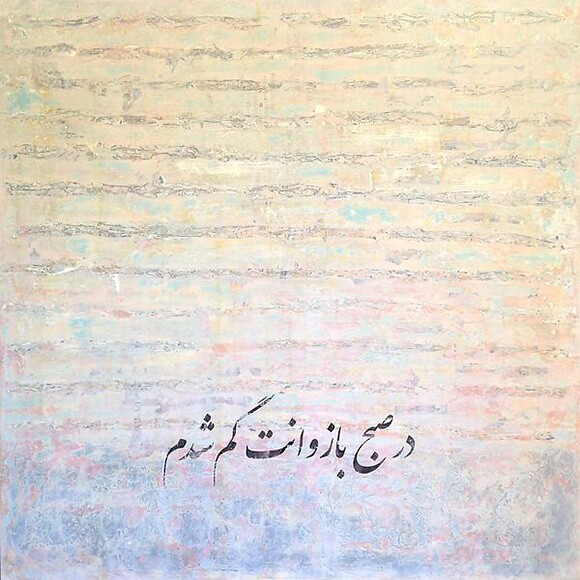 در صبح بازوانت گم شدم